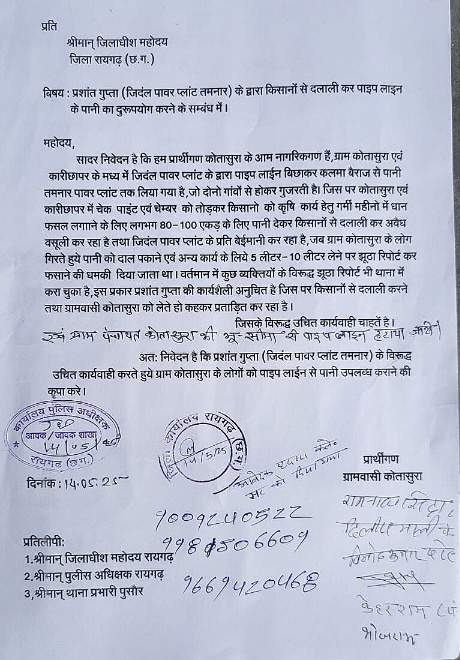 प्रति
श्रीमान् जिलाधीश महोदय
जिला रायगढ़ (छ.ग.)
विषय : प्रशांत गुप्ता (जिदंल पावर प्लांट तमनार) के द्वारा किसानों से दलाली कर पाइप लाइन
के पानी का दुरूपयोग करने के सम्बंध में।
महोदय,
सादर निवेदन है कि हम प्रार्थीगण कोतासुरा के आम नागरिकगण हैं,ग्राम कोतासुरा एवं
कारीछापर के मध्य में जिदंल पावर प्लांट के द्वारा पाइप लाईन बिछाकर कलमा बैराज से पानी
तमनार पावर प्लांट तक लिया गया है,जो दोनो गांवों से होकर गुजरती है। जिस पर कोतासुरा एवं
कारीछापर में चेक पाइंट एवं चेम्बर को तोड़कर किसानो को कृषि कार्य हेतु गर्मी महीनो में धान
फसल लगाने के लिए लगभग 80-100 एकड़ के लिए पानी देकर किसानों से दलाली कर अवैध
वसूली कर रहा है तथा जिदंल पावर प्लांट के प्रति बेईमानी कर रहा है,जब ग्राम कोतासुरा के लोग
गिरते हुये पानी को दाल पकाने एवं अन्य कार्य के लिये 5 लीटर-10 लीटर लेने पर झूठा रिपोर्ट कर
फसाने की धमकी दिया जाता था। वर्तमान में कुछ व्यक्तियों के विरूद्ध झूठा रिपोर्ट भी थाना में
करा चुका है,इस प्रकार प्रशांत गुप्ता की कार्यशैली अनुचित है जिस पर किसानों से दलाली करने
तथा ग्रामवासी कोतासुरा को लेते हो कहकर प्रताड़ित कर रहा है।
जिसके विरूद्ध उचित कार्यवाही चाहते है।
एवं ग्राम पंचायत कोतासुरा की भू-सीमा से पाइप लाइन हटाया जाये।
अत: निवेदन है कि प्रशांत गुप्ता (जिदंल पावर प्लांट तमनार) के विरूद्ध
उचित कार्यवाही करते हुये ग्राम कोतासुरा के लोगों को पाइप लाईन से पानी उपलब्ध कराने की
कृपा करे।
कार्यालय पुलिस अधीक्षक
आवक / जावक शाखा
14/05/
रायगढ़ (छ.ग.)
कार्यालय रायगढ़ (छ.ग.)
14/5/25
दिनांक : 14.05.25
प्रार्थीगण
ग्रामवासी कोतासुरा
7009240522
प्रतिलीपी:
1.श्रीमान् जिलाधीश महोदय रायगढ़
2.श्रीमान् पुलिस अधीक्षक रायगढ़
3,श्रीमान् थाना प्रभारी पुसौर
9669420468
भोजराम